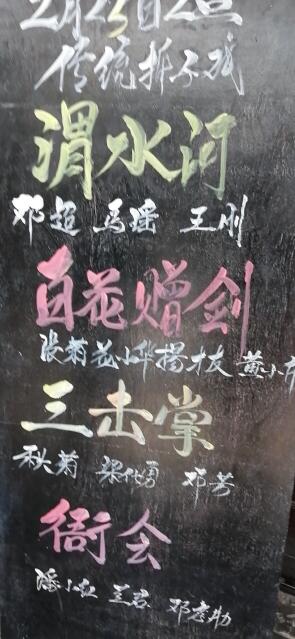 2月25日2点
传统折子戏
渭水河
邓超 马瑶 王刚
百花赠剑
张菊花 小华 杨枝 黄小
三击掌
秋菊 梁代勇 邓芳
衙会
潘小 兰君 邓孝勋